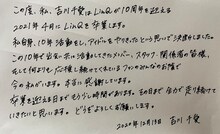 この度、私、吉川千愛はLinQが10周年を迎える
2021年4月にLinQを卒業します。
私自身、10年活動をし、アイドルをやりきったという思いで決めました。
この10年で出会い共に活動してきたメンバー、スタッフ、関係者の皆様、
そして何よりも、応援し続けてきてくれたファンのみなさんのお陰で
今のわたしがいます。本当に感謝してます。
卒業を迎える日までもう少し時間があります。その日まで全力で走り続けて
いきたいと思います。どうぞよろしくお願いします。
2020年12月13日 吉川千愛